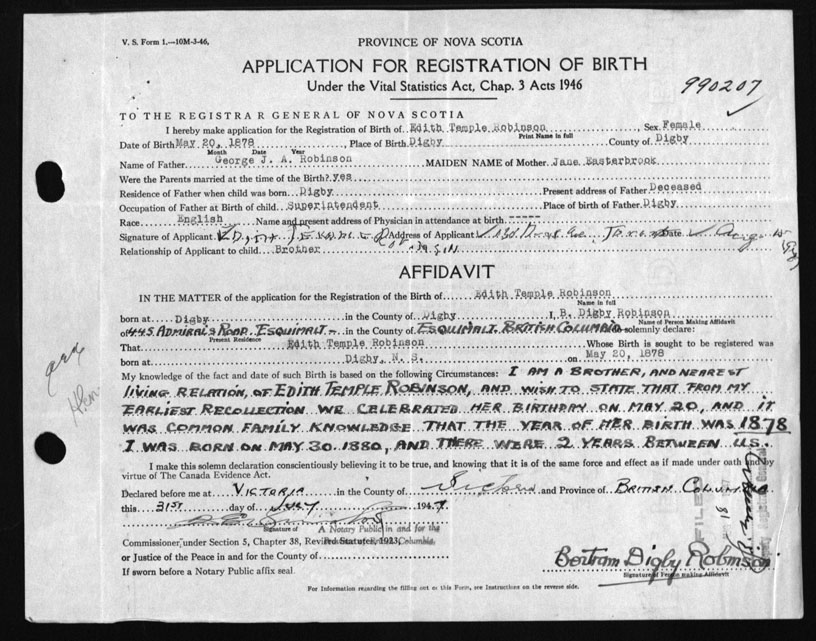 V. S. Form 1.—10M-3-46.
PROVINCE OF NOVA SCOTIA
APPLICATION FOR REGISTRATION OF BIRTH
Under the Vital Statistics Act, Chap. 3 Acts 1946
990207
TO THE REGISTRAR GENERAL OF NOVA SCOTIA
I hereby make application for the Registration of Birth of Edith Temple Robinson, Sex Female
Print Name in full
Date of Birth May 20, 1878, Place of Birth Digby County of Digby
Month Date Year
Name of Father George J. A. Robinson MAIDEN NAME of Mother Jane Easterbrook
Were the Parents married at the time of the Birth? yes
Residence of Father when child was born Digby Present address of Father Deceased
Occupation of Father at Birth of child Superintendent Place of birth of Father Digby
Race English Name and present address of Physician in attendance at birth -----
Signature of Applicant Address of Applicant Date
Relationship of Applicant to child Brother
AFFIDAVIT
IN THE MATTER of the application for the Registration of Birth of Edith Temple Robinson
Name in full
born at Digby in the County of Digby I, B. Digby Robinson
Name of Person Making Affidavit
of 445 ADMIRALS ROAD. ESQUIMALT in the County of ESQUIMALT. BRITISH COLUMBIA solemnly declare:
Present Residence
That Edith Temple Robinson Whose Birth is sought to be registered was
born at Digby, N. S. on May 20, 1878
My knowledge of the fact and date of such Birth is based on the following Circumstances: I AM A BROTHER, AND NEAREST
LIVING RELATION, OF EDITH TEMPLE ROBINSON, AND WISH TO STATE THAT FROM MY
EARLIEST RECOLLECTION WE CELEBRATED HER BIRTHDAY ON MAY 20, AND IT
WAS COMMON FAMILY KNOWLEDGE THAT THE YEAR OF HER BIRTH WAS 1878
I WAS BORN ON MAY 30. 1880, AND THERE WERE 2 YEARS BETWEEN US.
I make this solemn declaration conscientiously believing it to be true, and knowing that it is of the same force and effect as if made under oath and by
virtue of The Canada Evidence Act.
Declared before me at VICTORIA in the County of and Province of BRITISH COLUMBIA
this 31ST day of JULY 1947
Signature of A Notary Public in and for the
Commissioner, under Section 5, Chapter 38, Revised Statutes, 1923,
or Justice of the Peace in and for the County of
If sworn before a Notary Public affix seal
Bertram Digby Robinson
Signature of Person making Affidavit
FILED
18
For Information regarding the filling out of this Form, see Instructions on the reverse side.